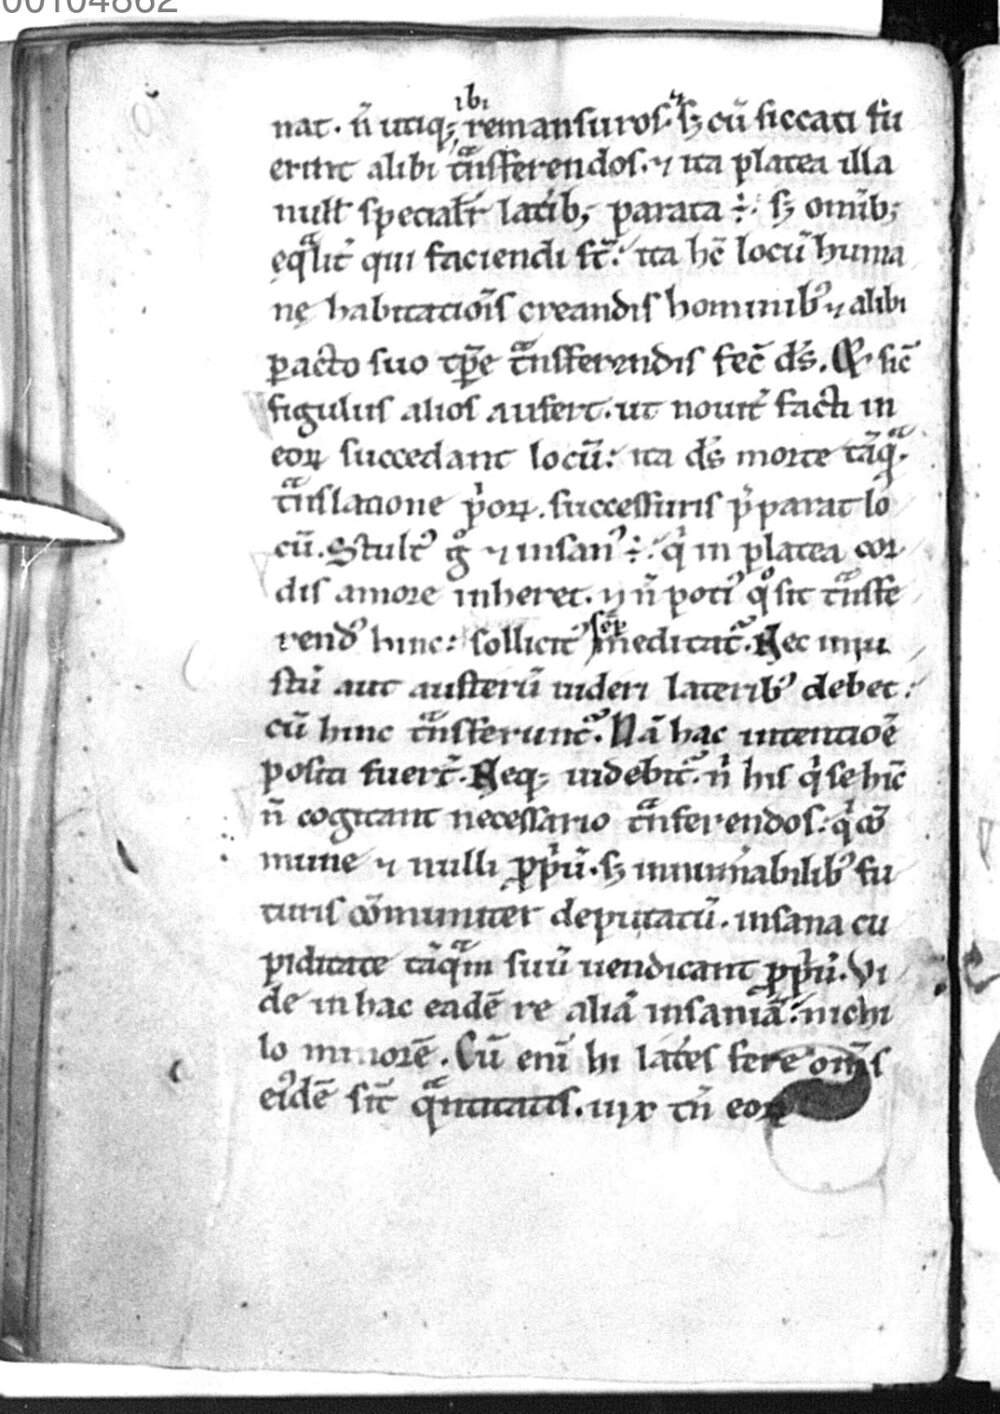 00104862
ibi
nat. n̄ utiq; remansuros. sꝫ cū siccati fu
erint alibi tͣnsferendos. ⁊ ita platea illa
null̄ specialr̄ latib; parata ÷ sꝫ omīb;
eqͣlit̄ qui faciendi st̄. ita hc̄ locū huma
nę habitatiōis creandis hominibꝰ ⁊ alibi
ꝑacto suo tp̄e tͣnsferendis fec̄ ds̄. Qͥ sic̄
figulus alios aufert. ut nouit̓ facti in
eoꝝ succedant locū: ita ds̄ morte tāqͣ
tͣnslatione pͥoꝝ. successuris p̄parat lo
cū. Stultꝰ gͦ ⁊ insanꝰ ÷ qͥ in platea cor
dis amore inheret. ⁊ n̄ potiꝰ qͦ sit tͣnsfe
rendꝰ hinc: sollicitꝰ sep̄ meditat᷑. Nec iniu
stū aut austerū uideri lateribꝰ debet:
cū hinc tͣnsferunt᷑. Nā hac intentiōe
positi fuer̄t. Neq; uidebit᷑. n̄ his qͥ se hīc
n̄ cogitant necessario tͣnferendos: qͥ cō
mune ⁊ nulli ꝓpͥū. sꝫ innum̄abilibꝰ fu
turis cōmuniter deputatū. insana cu
piditate tāqͣm suū uendicant ꝓpͥū. Vi
de in hac eadē re aliā insaniā: nichi
lo minorē. Cū enī hi lat̄es fere om̄s
eiꝰdē sīt qͣntitatis. uix tn̄ eoꝝ